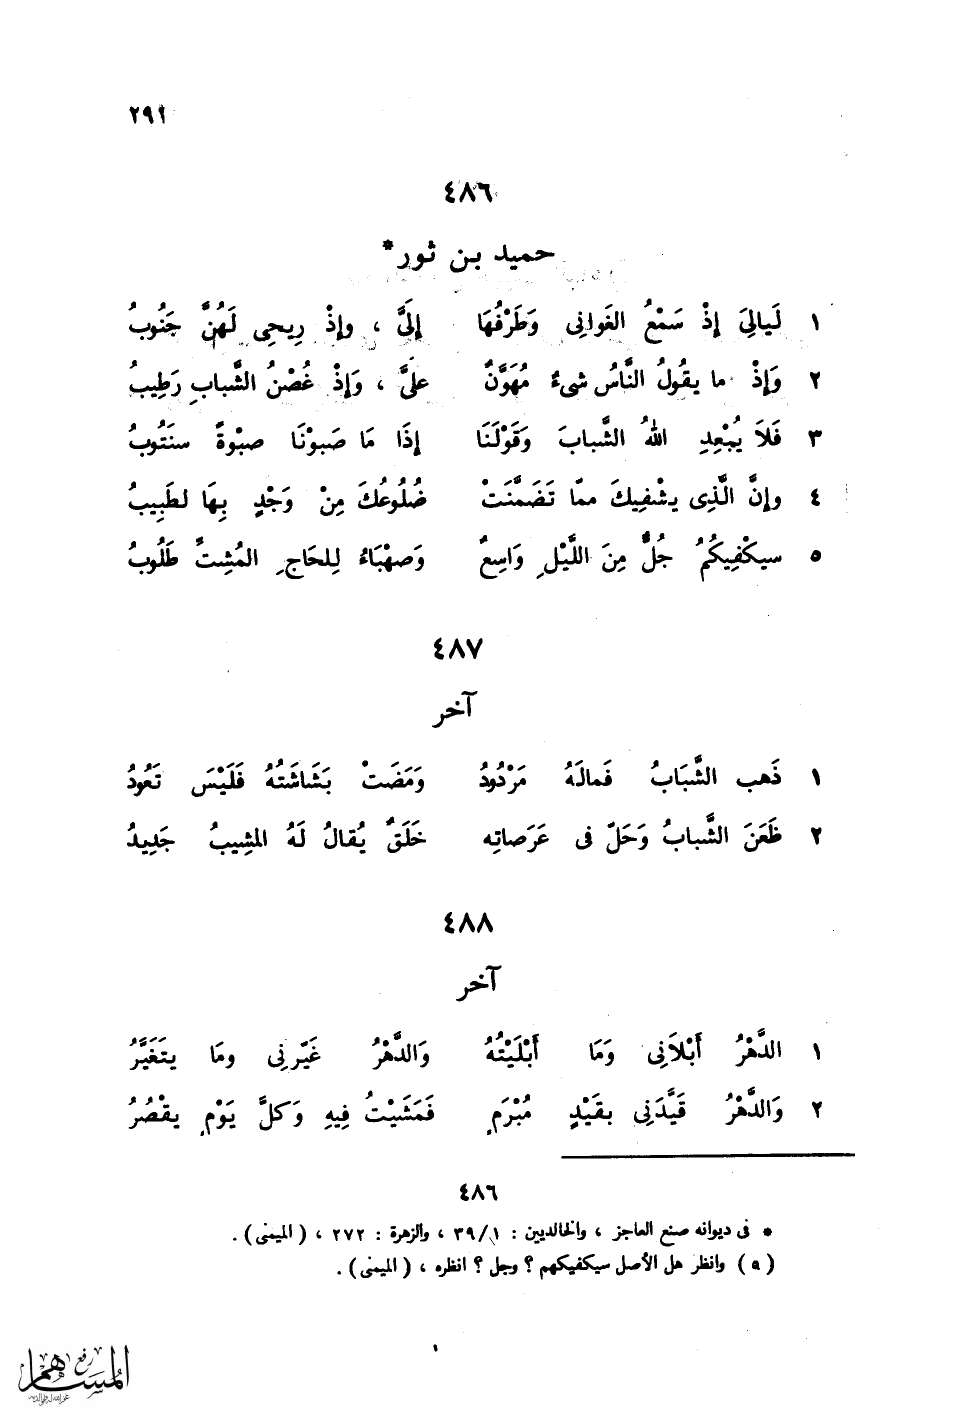 ٢٩١
٤٨٦
حميد بن ثور*
١ لَيالِيَ إذْ سَمْعُ الغَوانِى وَطَرْفُهَا إلىَّ ، وإذْ رِيحِى لَهُنَّ جَنُوبُ
٢ وَإذْ ما يقُولُ النَّاسُ شىءٌ مُهَوَّنٌ علىَّ ، وَإذْ غُصْنُ الشَّبابِ رَطِيبُ
٣ فَلاَ يُبْعِدِ اللهُ الشَّبابَ وَقَوْلَنَا إذَا مَا صَبوْنَا صبْوةً سنَتُوبُ
٤ وإنَّ الَّذِى يشْفِيكَ ممّا تَضَمَّنَتْ ضُلُوعُكَ مِنْ وَجْدٍ بِهَا لطَبِيبُ
٥ سيكْفِيكُمُ جُلٌّ مِنَ اللَّيْلِ وَاسِعٌ وَصهْبَاءُ لِلحَاجِ المُشِتِّ طَلُوبُ
٤٨٧
آخر
١ ذَهب الشَّبَابُ فَمالَهُ مَرْدُودُ وَمَضَتْ بَشَاشَتُهُ فَلَيْسَ تَعُودُ
٢ ظَعَنَ الشَّبابُ وَحَلّ فى عَرَصاتِه خَلَقٌ يُقالُ لَهُ المشِيبُ جَدِيدُ
٤٨٨
آخر
١ الدَّهْرُ أَبْلاَنِى وَمَا أَبْلَيْتُهُ وَالدَّهْرُ غَيّرنِى ومَا يتَغَيَّرُ
٢ وَالدَّهْرُ قَيَّدَنِى بقَيْدٍ مُبْرَمٍ فَمَشَيْتُ فِيهِ وَكلَّ يَوْمٍ يقْصُرُ
٤٨٦
* فى ديوانه صنع العاجز ، والخالديين : ٣٩/١ ، والزهرة : ٢٧٢ ، ( الميمنى ) .
( ٥ ) وانظر هل الأصل سيكفيكهم ؟ وجل ؟ انظره ، ( الميمنى ) .